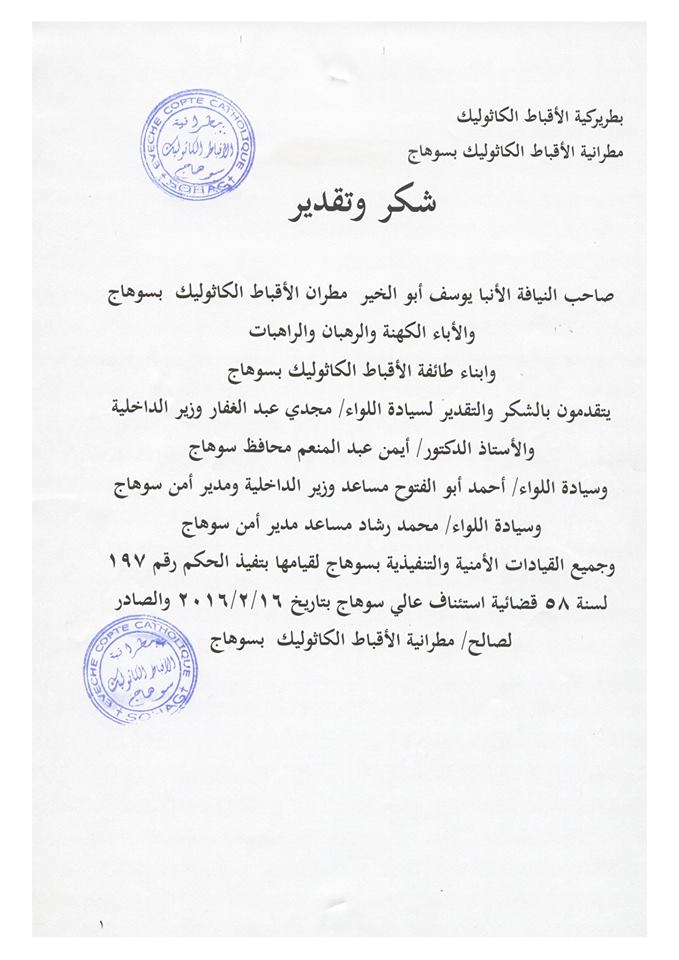 بطريركية الأقباط الكاثوليك
مطرانية الأقباط الكاثوليك بسوهاج
EVECHE COPTE CATHOLIQUE
مطرانية
الأقباط الكاثوليك
سوهاج
SOHAG
شكر وتقدير
صاحب النيافة الأنبا يوسف أبو الخير مطران الأقباط الكاثوليك بسوهاج
والأباء الكهنة والرهبان والراهبات
وابناء طائفة الأقباط الكاثوليك بسوهاج
يتقدمون بالشكر والتقدير لسيادة اللواء/ مجدي عبد الغفار وزير الداخلية
والأستاذ الدكتور/ أيمن عبد المنعم محافظ سوهاج
وسيادة اللواء/ أحمد أبو الفتوح مساعد وزير الداخلية ومدير أمن سوهاج
وسيادة اللواء/ محمد رشاد مساعد مدير أمن سوهاج
وجميع القيادات الأمنية والتنفيذية بسوهاج لقيامها بتفيذ الحكم رقم ١٩٧
لسنة ٥٨ قضائية استئناف عالي سوهاج بتاريخ ٢٠١٦/٢/١٦ والصادر
لصالح/ مطرانية الأقباط الكاثوليك بسوهاج
EVECHE COPTE CATHOLIQUE
مطرانية
الأقباط الكاثوليك
سوهاج
SOHAG
١